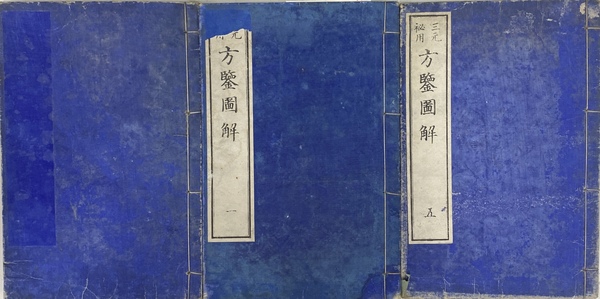 元
方鑒圖解
一
三元
祕用
方鑒圖解
五